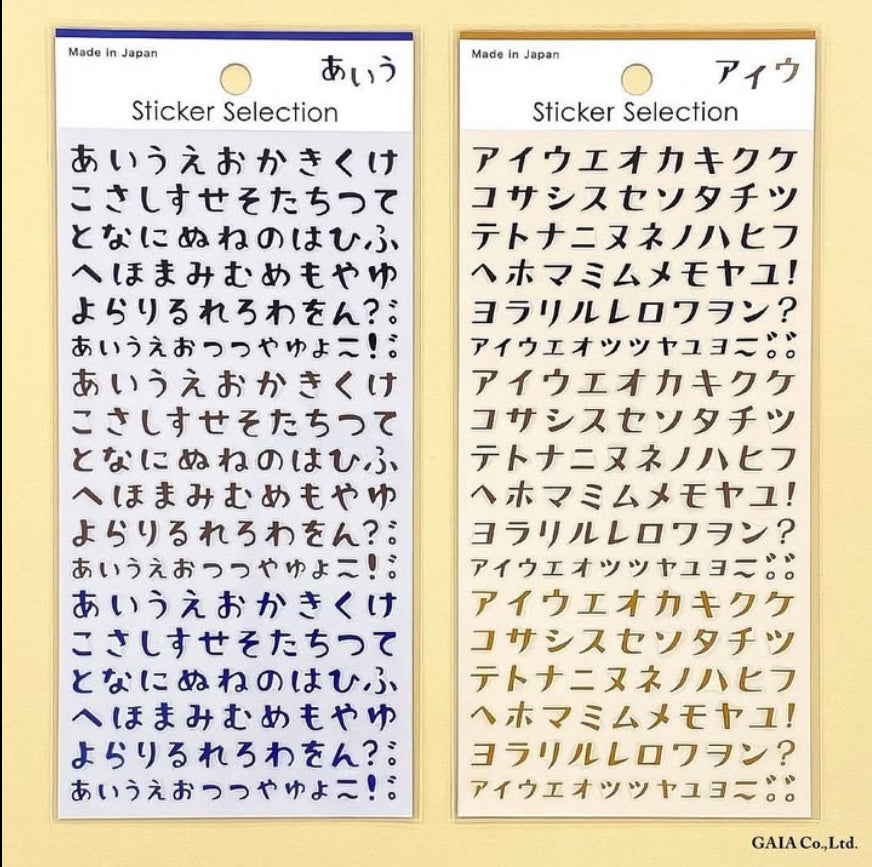 Made in Japan
あいう
Sticker Selection
あいうえおかきくけ
こさしすせそたちつて
となにぬねのはひふ
へほまみむめもやゆ
よらりるれろわをん?゛。
あいうえおつつやゆよー~!゛。
あいうえおかきくけ
こさしすせそたちつて
となにぬねのはひふ
へほまみむめもやゆ
よらりるれろわをん?゛。
あいうえおつつやゆよー~!゛。
あいうえおかきくけ
こさしすせそたちつて
となにぬねのはひふ
へほまみむめもやゆ
よらりるれろわをん?゛。
あいうえおつつやゆよー~!゛。
Made in Japan
アイウ
Sticker Selection
アイウエオカキクケ
コサシスセソタチツ
テトナニヌネノハヒフ
ヘホマミムメモヤユ!
ヨラリルレロワヲン?
アイウエオツツヤユヨー~゛。゛。
アイウエオカキクケ
コサシスセソタチツ
テトナニヌネノハヒフ
ヘホマミムメモヤユ!
ヨラリルレロワヲン?
アイウエオツツヤユヨー~゛。゛。
アイウエオカキクケ
コサシスセソタチツ
テトナニヌネノハヒフ
ヘホマミムメモヤユ!
ヨラリルレロワヲン?
アイウエオツツヤユヨー~゛。゛。
GAIA Co.,Ltd.